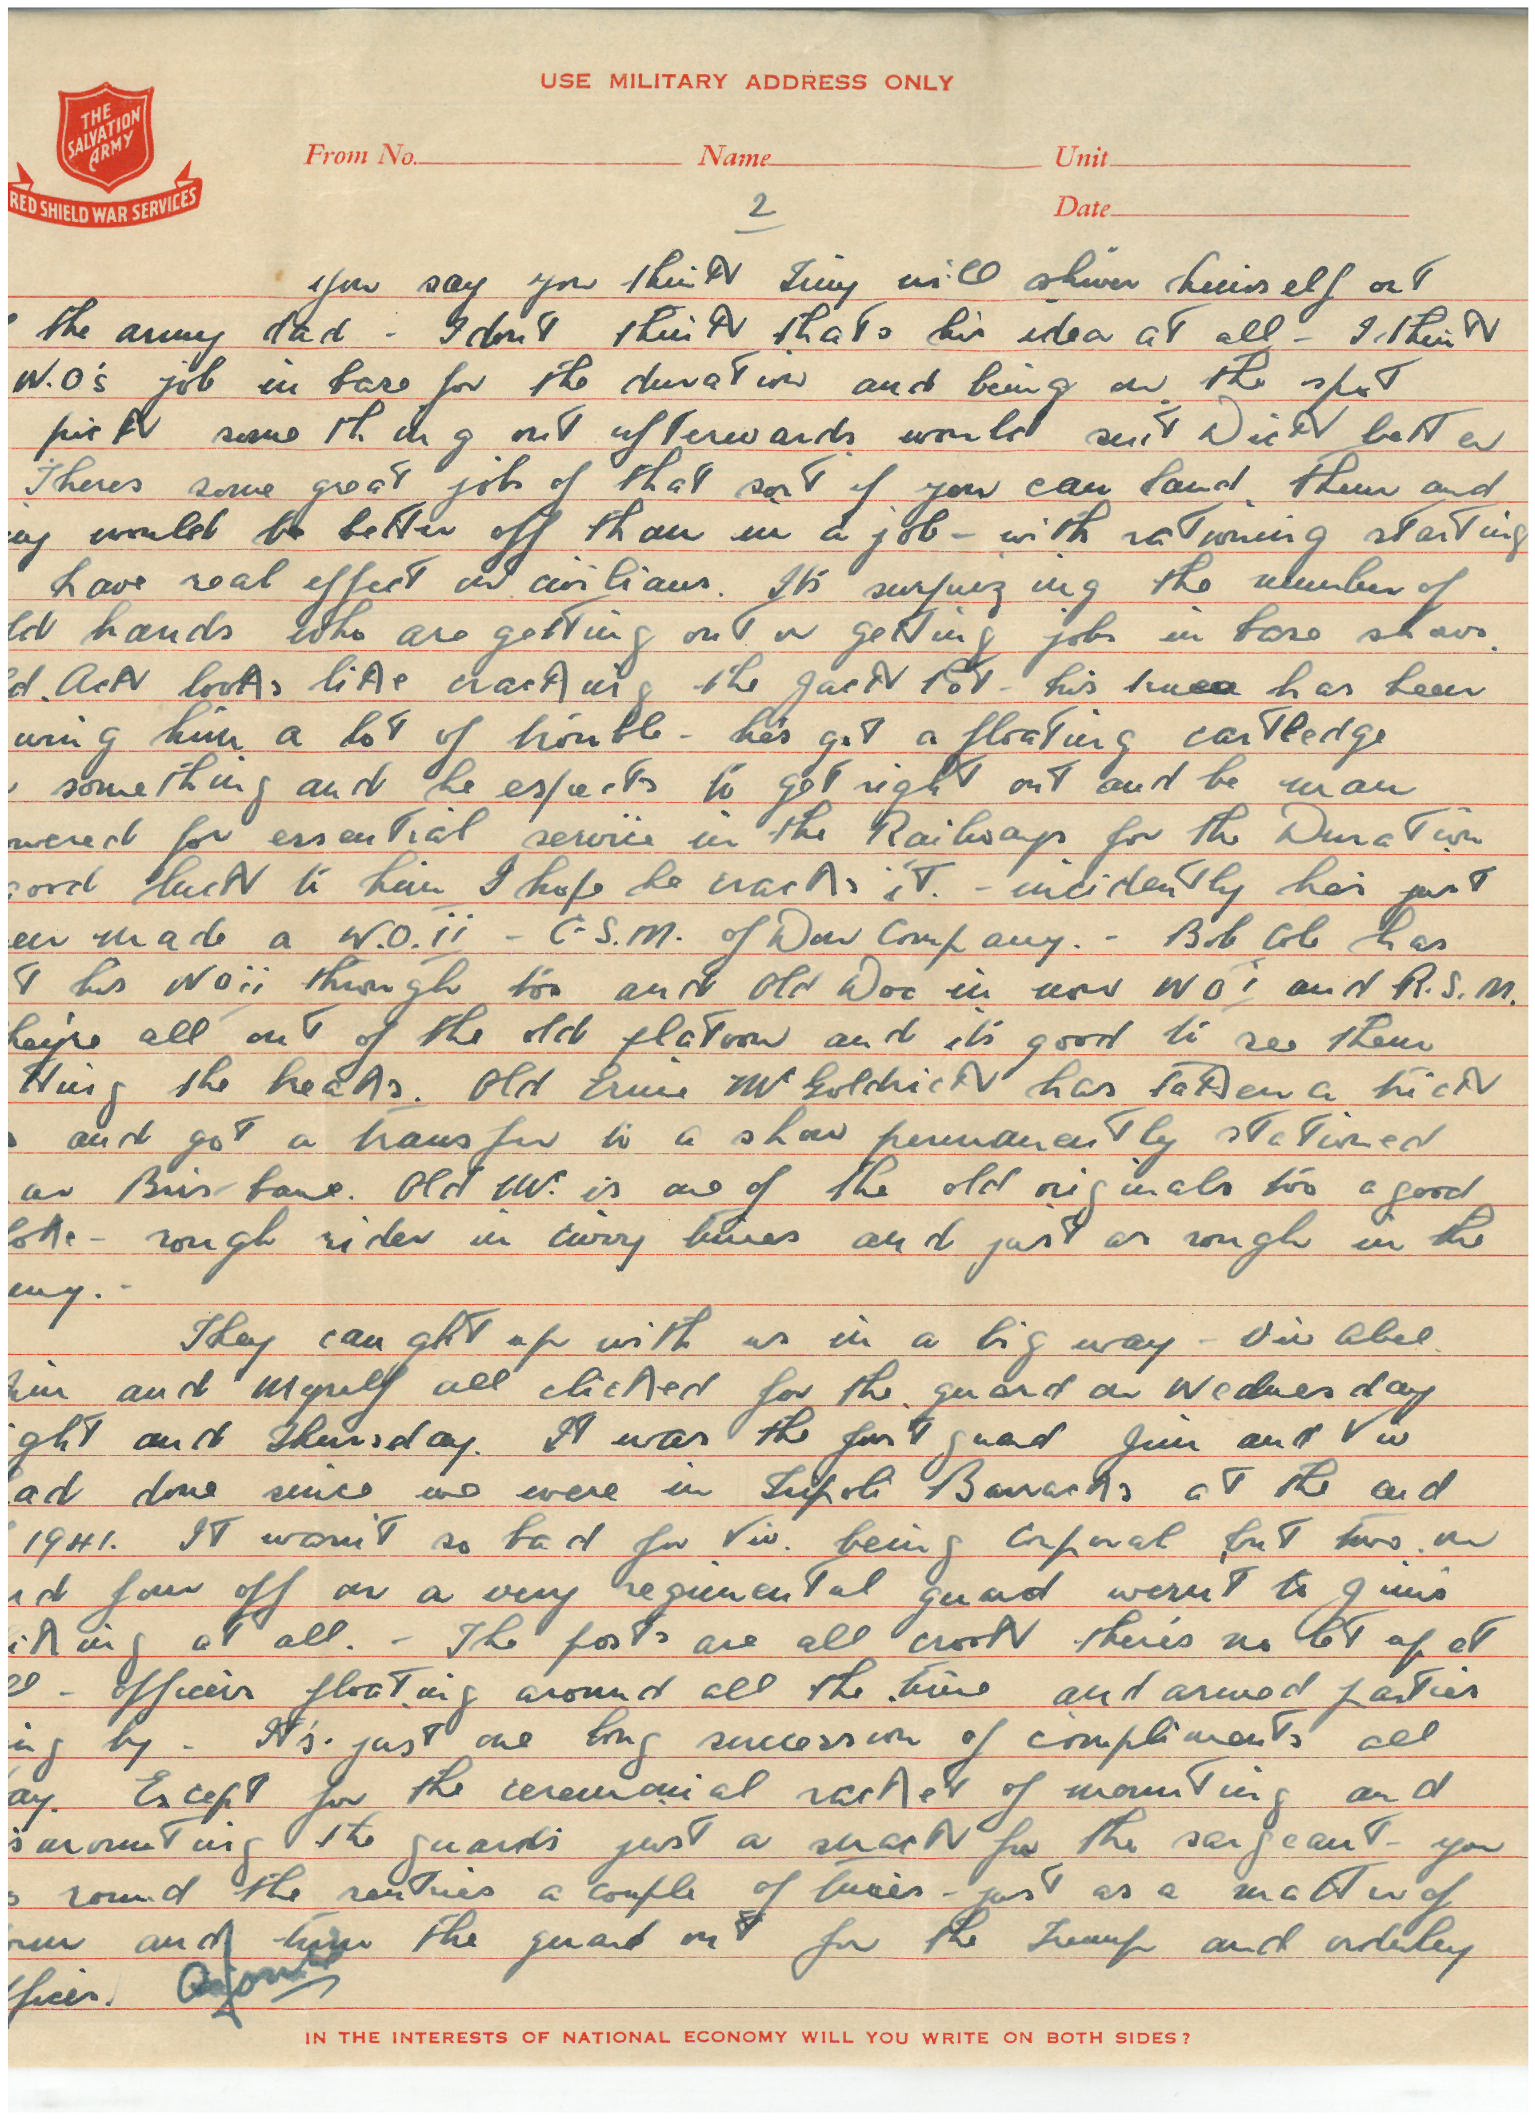 USE MILITARY ADDRESS ONLY
THE
SALVATION
ARMY
RED SHIELD WAR SERVICES
From No. Name Unit
Date
2
you say you think will himself out
the army dad - I don't think thats his idea at all - I think
W.O's job in base for the duration and being on the spot
pick something out afterwards would suit Dick better
Theres some great jobs of that sort if you can land them and
would be better off than in a job - with rationing starting
have real effect on civilians. Its surprizing the number of
hands who are getting out or getting jobs in base shows.
Ack looks like cracking the Jack Pot - his knee has been
him a lot of trouble - he's got a floating cartledge
something and he expects to get right out and be man
for essential service in the Railways for the Duration
luck to him I hope he cracks it. - incidently he's just
made a W.O.ii - C.S.M. of Don Company. - Bob Cole has
his WOii through too and Old Doc is now WOi and R.S.M.
all out of the old platoon and its good to see them
the heads. Old Ernie McGoldrick has taken a trick
and got a transfer to a show permanently stationed
Brisbane. Old Mc. is one of the old originals too a good
- rough rider in civvy times and just as rough in the
They caught up with us in a big way - Viv Abel
and Myself all clicked for the guard on Wednesday
and Thursday. It was the first guard Jim and Viv
done since we were in Tripoli Barracks at the end
1941. It wasn't so bad for Viv. being Corporal but two on
four off on a very regimental guard wern't to Jim's
at all. - The posts are all crook there's no let up at
- officers floating around all the time and armed parties
by - It's just one long succession of compliments all
Except for the ceremonial racket of mounting and
the guards just a snack for the sargeant - you
round the sentries a couple of times - just as a matter of
and turn the guard out for the Trump and orderley
IN THE INTERESTS OF NATIONAL ECONOMY WILL YOU WRITE ON BOTH SIDES?